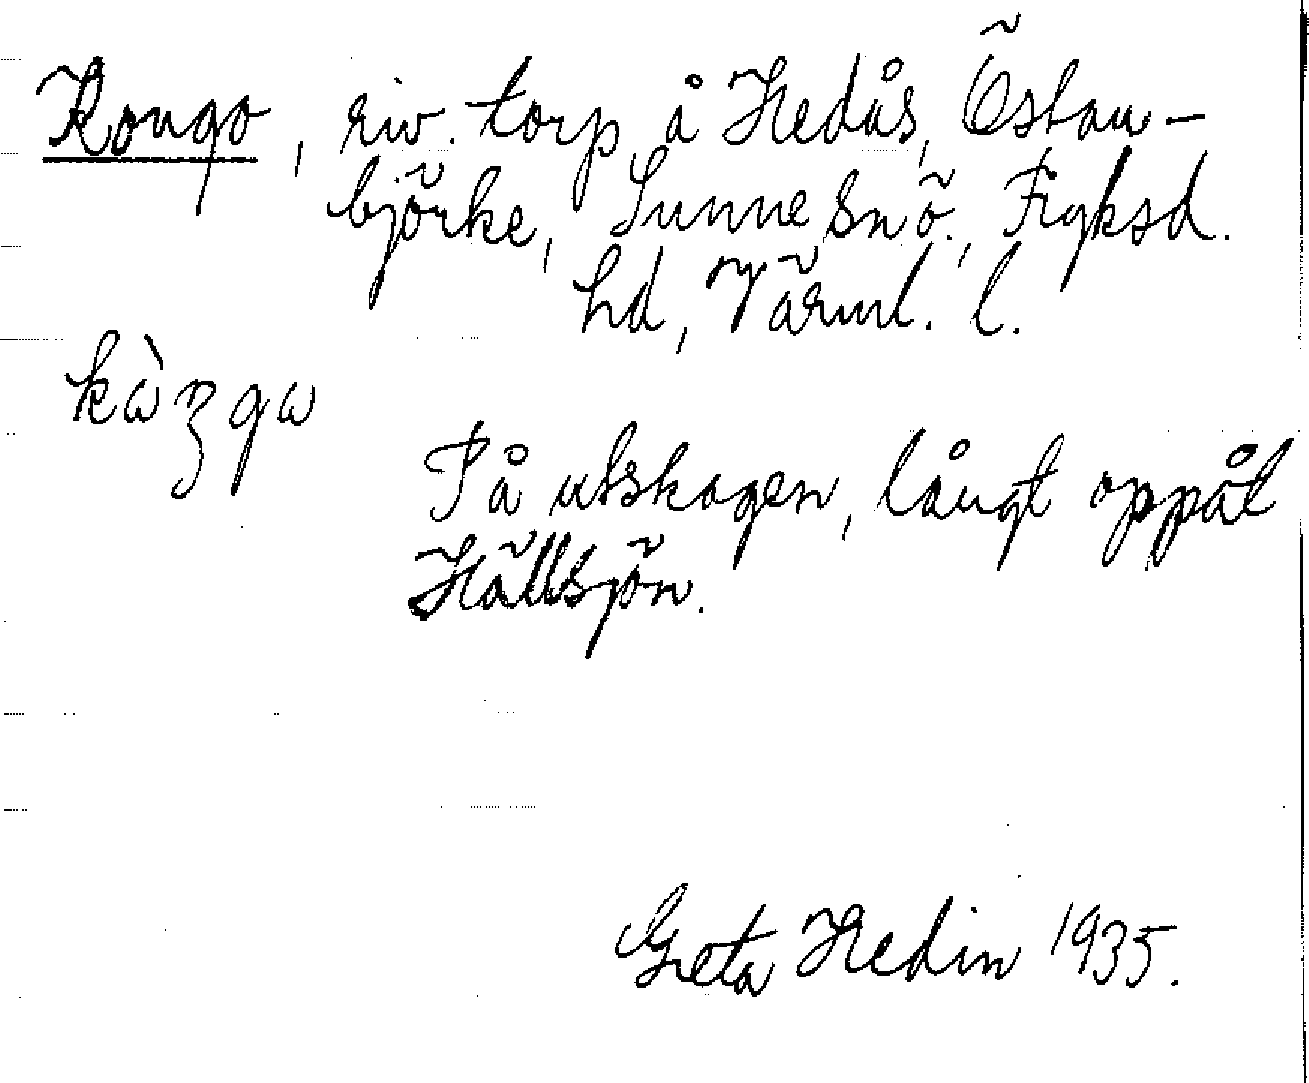 Kongo, riv. torp å Hedås, Östan-
björke, Sunne snö., Fryksd.
hd, Värml. l.
kὼŋgω
På utskogen, långt oppåt
Hällsjön.
Greta Hedin 1935.